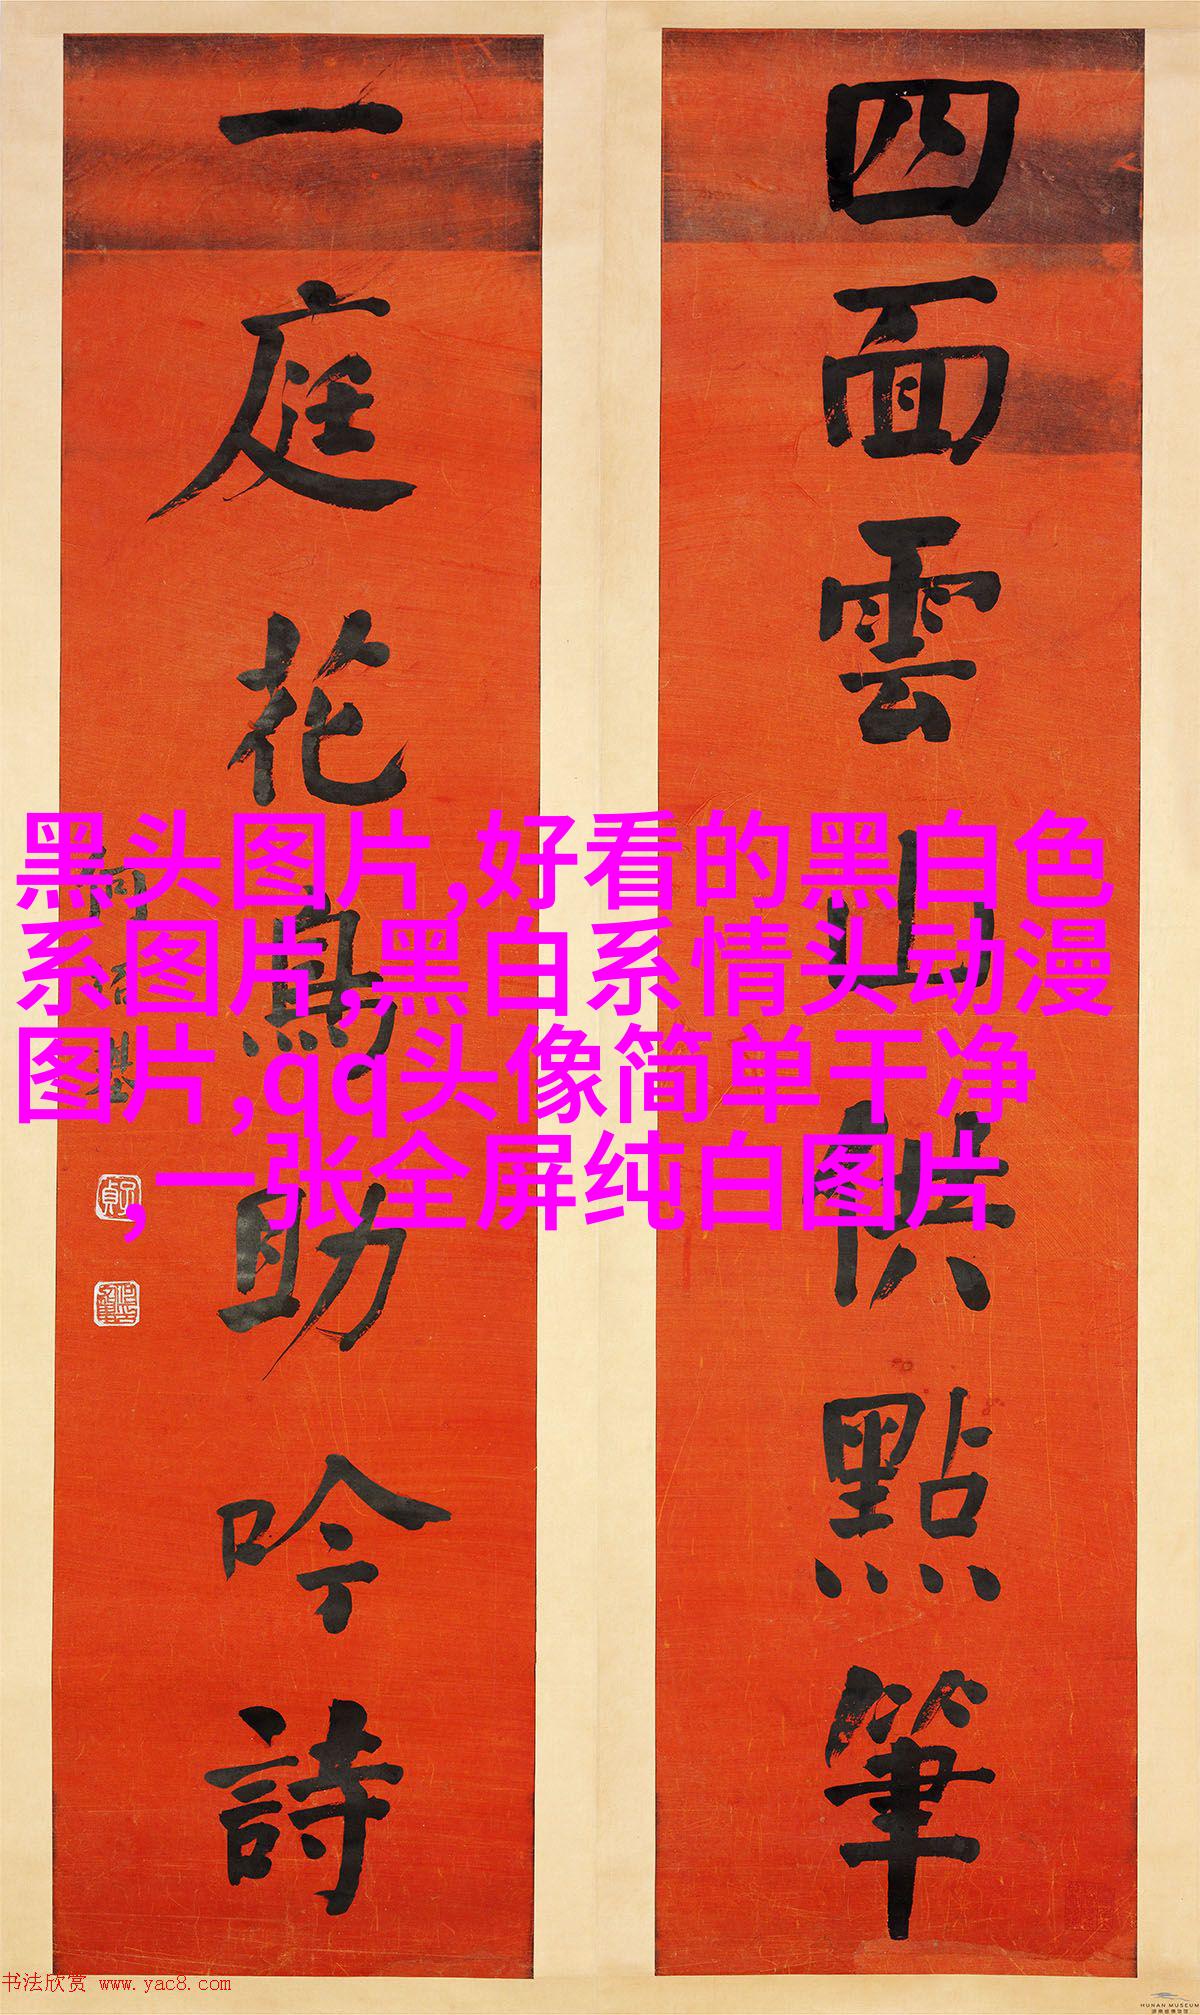 四面雲山供點筆
一庭花鳥助吟詩
何紹基
黑头图片,好看的黑白色
系图片,黑白系情头动漫
图片,qq头像简单干净
,一张全屏纯白图片
书法欣赏 www.yac8.com
HUNAN MUSEUM
湖南博物院